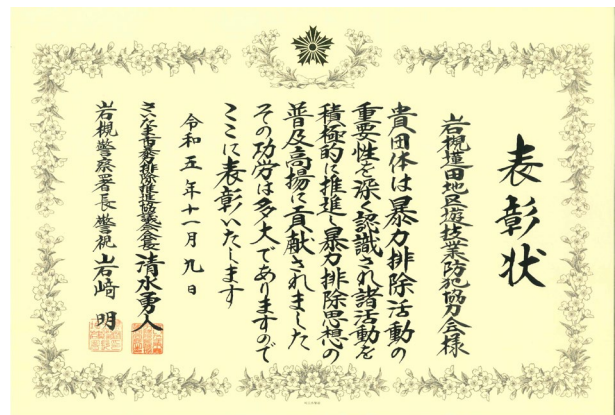 表彰状
岩槻蓮田地区遊技業防犯協力会様
貴団体は暴力排除活動の
重要性を深く認識され諸活動を
積極的に推進し暴力排除思想の
普及高揚に貢献されました
その功労は多大でありますので
ここに表彰いたします
令和五年十一月九日
さいたま市暴力排除推進協議会会長 清水勇人
岩槻警察署長 警視 岩﨑 明